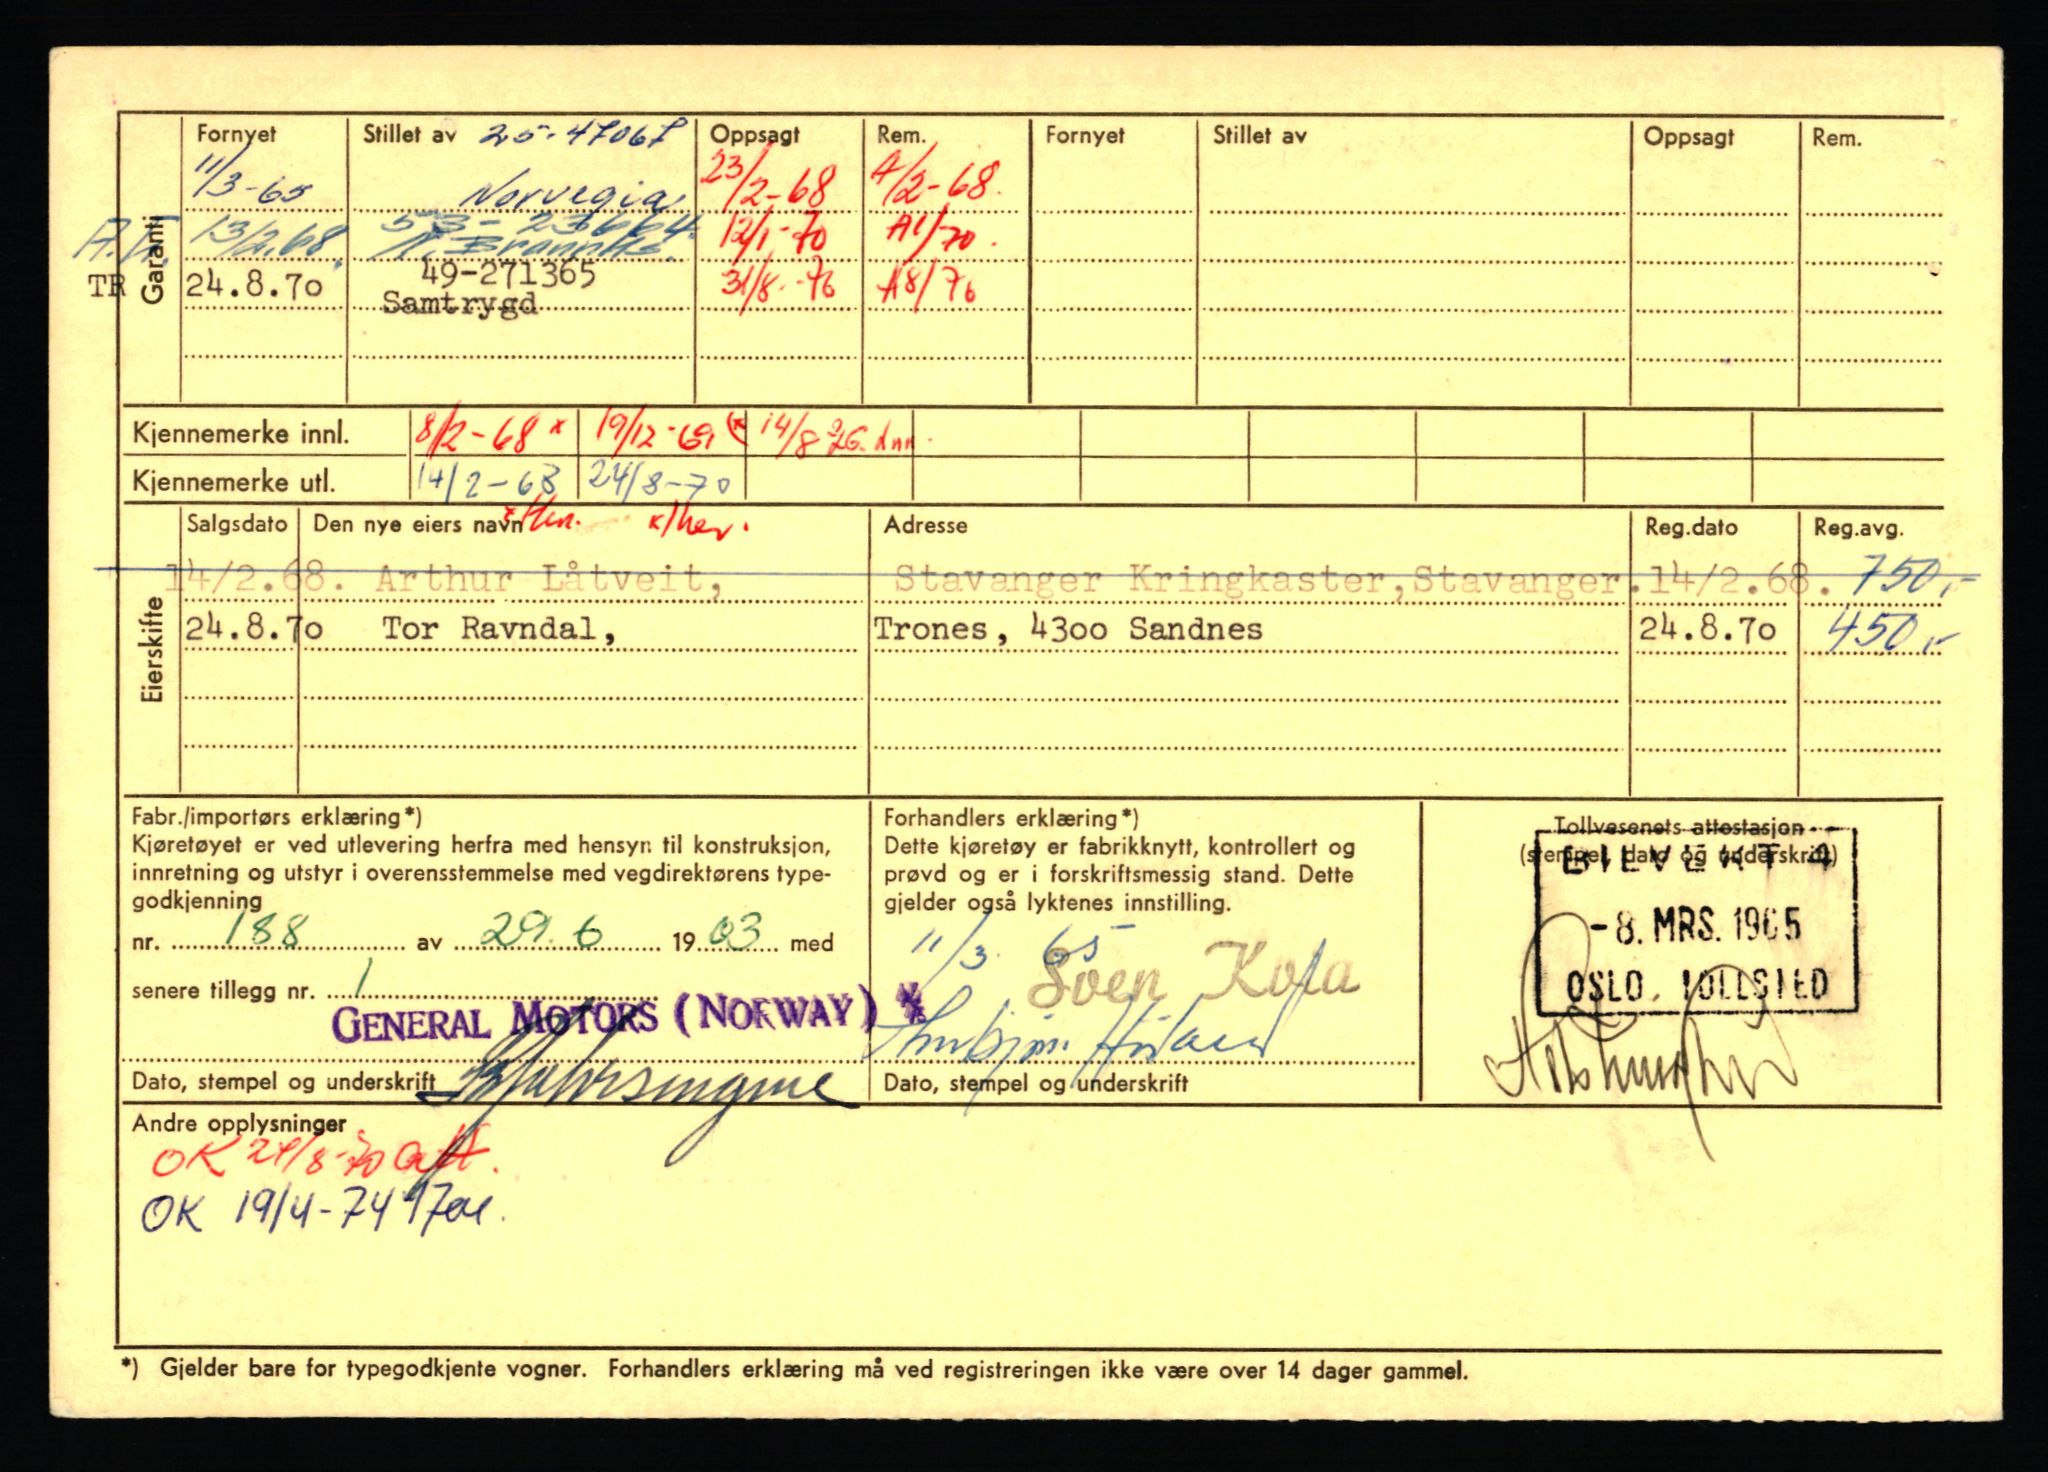 Garanti
Fornyet Stillet av 25-47067 Oppsagt Rem. Fornyet Stillet av Oppsagt Rem.
11/3-65 Norvegia 23/2-68 A/2-68.
13/2.68. 53-23664. 12/1-70 A1/70.
TR 24.8.70 49-271365 31/8-76 A8/76
Samtrygd
Kjennemerke innl. 8/2-68 x 19/12-69 (x 14/8
Kjennemerke utl. 14/2-68 24/8-70
Eierskifte
Salgsdato Den nye eiers navn Adresse Reg.dato Reg.avg.
14/2.68. Arthur Låtveit, Stavanger Kringkaster, Stavanger. 14/2.68. 750,-
24.8.70 Tor Ravndal, Trones, 4300 Sandnes 24.8.70 450,-
Fabr./importørs erklæring*)
Kjøretøyet er ved utlevering herfra med hensyn til konstruksjon,
innretning og utstyr i overensstemmelse med vegdirektørens type-
godkjenning
nr. 188 av 29.6 1963 med
senere tillegg nr. 1
GENERAL MOTORS (NORWAY) A/S
Dato, stempel og underskrift
Forhandlers erklæring*)
Dette kjøretøy er fabrikknytt, kontrollert og
prøvd og er i forskriftsmessig stand. Dette
gjelder også lyktenes innstilling.
11/3. 65
Dato, stempel og underskrift
Tollvesenets attestasjon
(stempel, dato og underskrift)
-8. MRS. 1965
OSLO TOLLSTED
Andre opplysninger
OK 24/8-70
OK 19/4-74
*) Gjelder bare for typegodkjente vogner. Forhandlers erklæring må ved registreringen ikke være over 14 dager gammel.